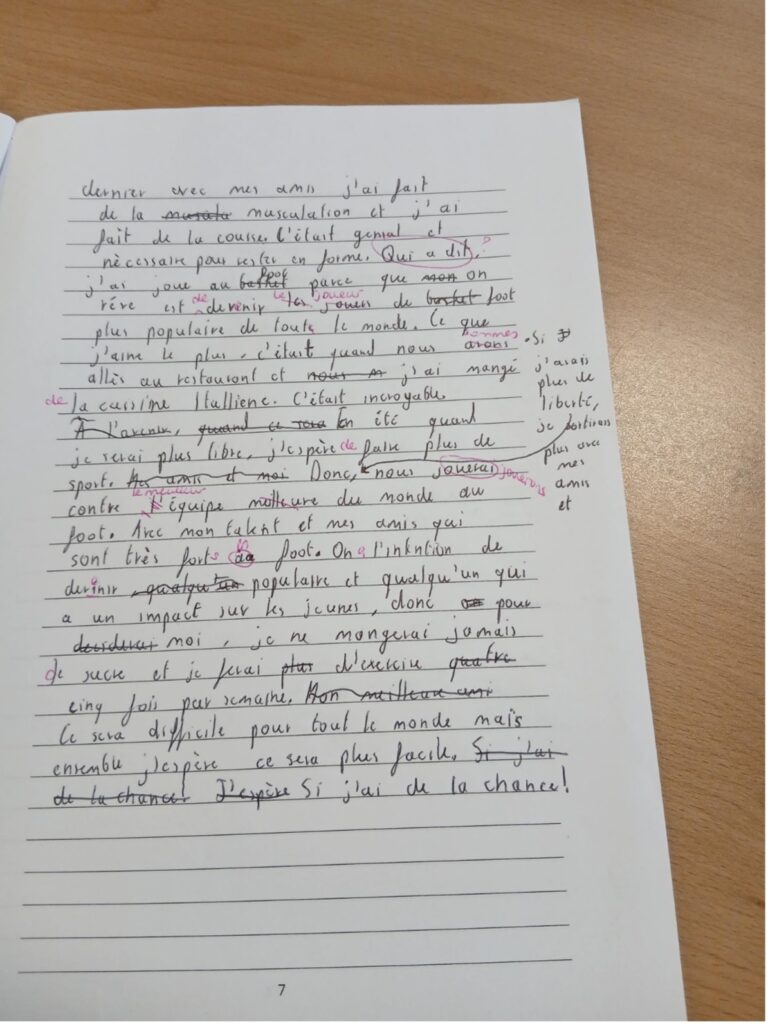 dernier avec mes amis j'ai fait
de la musculation et j'ai
fait de la course. C'était genial et
nècessaire pour rester en forme. Qui a dit ?
j'ai joue au foot parce que on
rêve est de devenir le joueur de foot
plus populaire de touts le monde. Ce que
j'aime le plus, c'était quand nous avons sommes
allès au restaurant et j'ai mangé
de la cuisine Itallienc. C'était incroyable.
À l'avenir, En été quand
je serai plus libre, j'espère de faire plus de
sport. Donc, nous jouerai jouerons
Si j'avais
plus de
liberté,
je
plus avec
mes
amis
et
contre l'équipe le meilleur du monde au
foot. Avec mon talent et mes amis qui
sont très forts foot. On a l'intention de
devenir populaire et quelqu'un qui
a un impact sur les jeunes, donc pour
moi, je ne mangerai jamais
de sucre et je ferai d'exercise
cinq fois par semaine.
Ce sera difficile pour tout le monde mais
ensemble j'espère ce sera plus facile. Si j'ai
de la chance! J'espère Si j'ai de la chance!
7